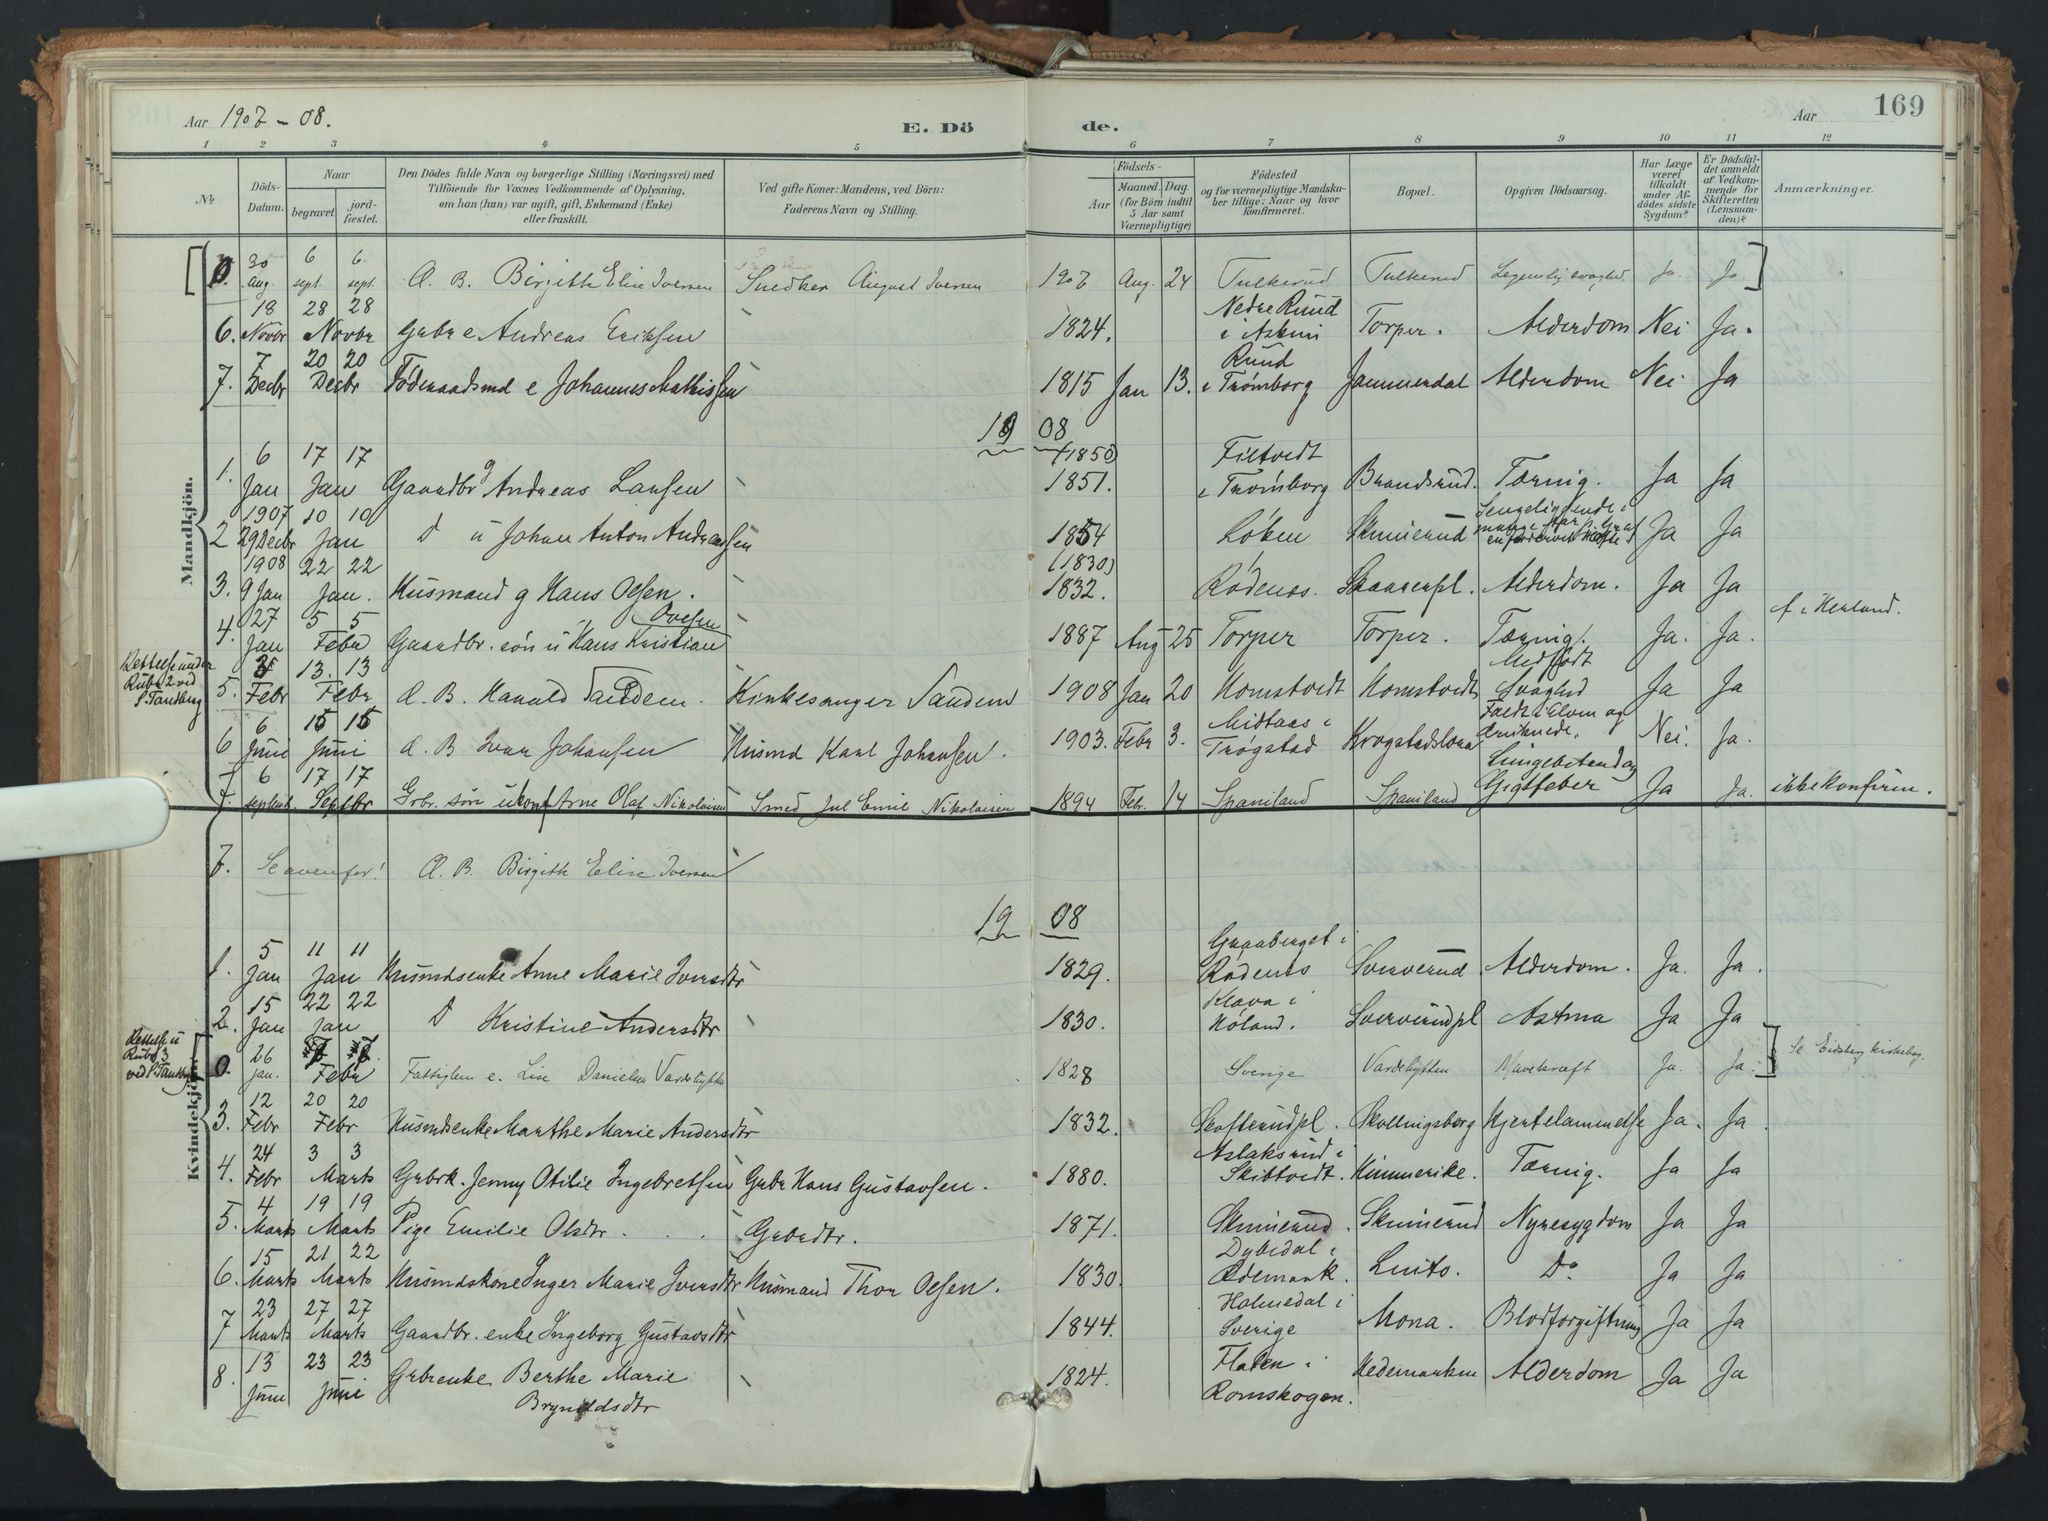 Aar 1907 - 08.
E. Dö
de.
Aar
169
1 2 3 4 5 6 7 8 9 10 11 12
No
Döds-Datum.
Naar
begravet
jordfæstet.
Den Dödes fulde Navn og borgerlige Stilling (Næringsvei) med
Tilföiende for Voxnes Vedkommende af Oplysning,
om han (hun) var ugift, gift, Enkemand (Enke)
eller fraskilt.
Ved gifte Koner: Mandens, ved Börn:
Faderens Navn og Stilling.
Födsels-
Aar
Maaned. Dag.
(for Börn indtil
5 Aar samt
Værnepligtige)
Födested
og for værnepligtige Mandskaber tillige: Naar og hvor
konfirmeret.
Bopæl.
Opgiven Dödsaarsag.
Har Læge
været
tilkaldt
under Afdödes sidste
Sygdom?
Er Dödsfaldet anmeldt
af Vedkommende for
Skifteretten
(Lensmanden)?
Anmærkninger.
Mandkjön.
0. 30 Aug. 6 sept. 6. sept. d. B. Birgith Elise Iversen Snedker August Iversen 1907 Aug. 24 Tulkerud Tulkerud Legemlig svaghed Ja. Ja.
6. 18 Novbr 28 28 Novbr Gbr e Andreas Eriksen 1824. Nedre Ruud i Askim Torper. Alderdom Nei Ja.
7. 7 Decbr 20 20 Decbr Föderaadsmd e Johannes Mathissen 1815 Jan 13. Ruud i Trømborg Jammerdal Alderdom Nei Ja
19 08
1. 6 Jan 17 17 Jan Gaardbr g Andreas Larsen (1850) 1851. Filtvedt i Trømborg Brandsrud. Tæring. Ja Ja
2 1907 29 Decbr 10 10 Jan D u Johan Anton Andreassen 1854 Løken Skinnerud Sengeliggende i mange Aar Ja Ja
3. 1908 9 Jan 22 22 Jan. Husmand g Hans Olsen. (1830) 1832. Rødenes. Skaarerpl. Alderdom. Ja Ja
4. 27 Jan 5 5 Febr Gaardbr. søn u Hans Kristian Ovesen 1887 Aug 25 Torper Torper. Tæring. Ja. Ja. f i Herland.
Rettelse under Rubr 2 ved P Tandberg
5. 3 Febr 13. 13 Febr d. B. Harald Sandem. Kirkesanger Sandem 1908 Jan 20 Homstvedt Homstvedt Medfödt Svaghed Ja Ja
6 6 Juni 15 15 Juni d. B Ivar Johansen Husmd Karl Johansen. 1903. Febr 3. Midtaas i Trøgstad Krogstadslora Faldt i Elven og druknede. Nei. Ja.
7. 6 septemb. 17 17 Septbr Grbr. søn ukonf Arne Olaf Nikolaisen Smed Jul Emil Nikolaisen 1894 Febr. 14 Spaniland Spaniland Lungebetændag Gigtfeber Ja Ja. ikke konfirm.
Kvindekjön.
7. Se ovenfor! d. B. Birgith Elise Iversen
19 08
1. 5 Jan 11 11 Jan Husmdsenke Anne Marie Iversdtr 1829. Graaberget i Rødenes Sververud Alderdom. Ja. Ja.
2. 15 Jan 22 22 Jan D Kristine Andersdtr 1830. Klava i Høland. Sververudpl Astma Ja Ja
Rettelse u Rubr 3 ved P Tandberg
0. 26 Jan. 7 7. Febr Fattiglem e. Lise Danielsen Vardehytten 1828 Sverige Vardehytten Mavekræft Ja. Ja. Se Eidsberg kirkebog.
3. 12 Febr 20 20 Febr Husmdsenke Marthe Marie Andersdtr 1832. Skofterudpl. Skollingsborg Hjertelammelse Ja. Ja.
4. 24 Febr 3 3 Marts Gbrk. Jenny Otilie Ingebretsen Gbr Hans Gustavsen. 1880. Aslaksrud i Skiptvedt. Himmerike. Tæring. Ja Ja
5. 4 Marts 19 19 Marts Pige Emilie Olsdtr. Gbrdtr. 1871. Skinnerud. Skinnerud Nyresygdom Ja Ja
6. 15 Marts 21 22 Marts Husmdskone Inger Marie Iversdtr Husmand Thor Olsen. 1830. Dybedal i Ødemark. Luito. Do Ja Ja
7 23 Marts 27 27 Marts Gaardbr. enke Ingeborg Gustavsdtr 1844. Holmedal i Sverige Mona. Blodforgiftning Ja Ja
8. 13 Juni 23 23 Juni Gbrenke Berthe Marie Brynildsdtr 1824. Flaten i Romskogen. Hedemarken Alderdom Ja Ja